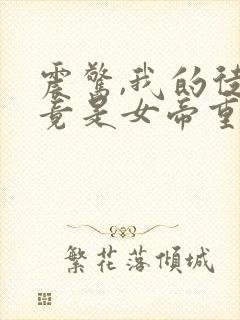 震惊,我的徒
竟是女帝重
繁花落倾城